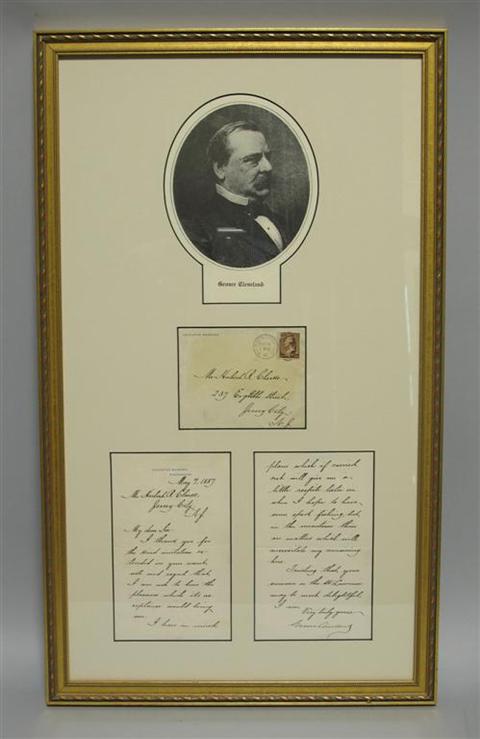 Grover Cleveland
EXECUTIVE MANSION
Mr Hubert A. Clause
237 Eighth Street
Jersey City
N.J.
EXECUTIVE MANSION
WASHINGTON
May 7, 1887
Mr. Hubert A. Clause,
Jersey City
N.J.
My dear Sir:
I thank you for
the kind invitation ex-
tended in your
note and regret that
I am not to have the
pleasure which its ac-
ceptance would bring
me.
I have in mind
plans which if carried
out will give me a
little respite later on
when I hope to have
some sport fishing, but
in the meantime there
are matters which will
necessitate my remaining
here.
Trusting that your
in the
may be most delightful
I am
Very truly yours
Grover Cleveland